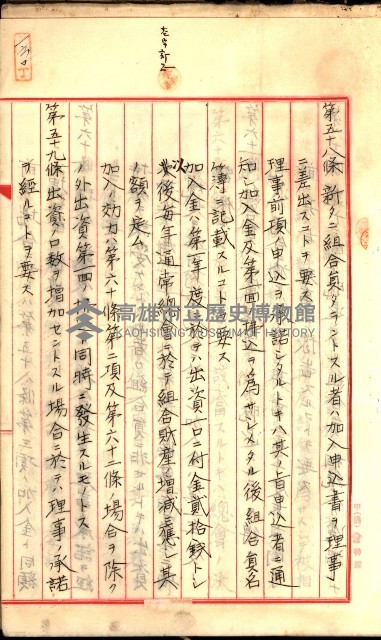 第五十八條 新タニ組合員タラントスル者ハ加入申込書ヲ理事
ニ差出スコトヲ要ス
理事前項ノ申込ヲ承諾シタルトキハ其ノ旨申込者ニ通
知シ加入金及第一回拂込ヲ為サシメタル後組合員名
簿ニ記載スルコトヲ要ス
加入金ハ第一年度ニ於テハ出資一口ニ付金貳拾錢トシ
以後每年通常總會ニ於テ組合財產ノ增減ニ應シ其
ノ額ヲ定ム
加入ノ効力ハ第六十條第二項及第六十二條ノ場合ヲ除ク
ノ外出資第一回ノ拂込ト同時ニ發生スルモノトス
第五十九條 出資口數ヲ增加セントスル場合ニ於テハ理事ノ承諾
ヲ經ルコトヲ要ス
高雄市立歷史博物館
KAOHSIUNG MUSEUM OF HISTORY